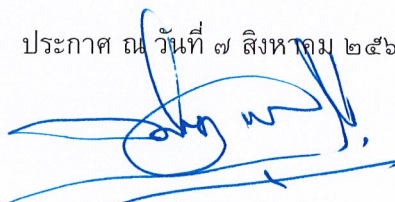 ประกาศ ณ วันที่ ๗ สิงหาคม ๒๕๖